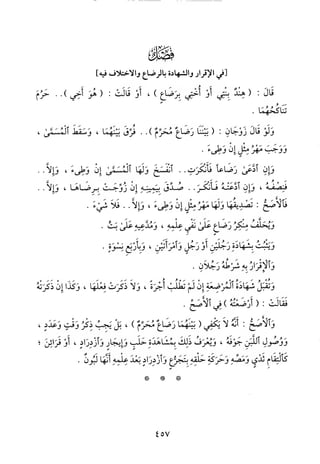 فَصْلٌ
[في الإقرار والشهادة بالرضاع والاختلاف فيه]
قَالَ : ( هِنْدٌ بِنْتِي أَوْ أُخْتِي بِرَضَاعٍ ) ، أَوْ قَالَتْ : ( هُوَ أَخِي ) . . حَرُمَ
تَنَاكُحُهُمَا .
وَلَوْ قَالَ زَوْجَانِ : ( بَيْنَنَا رَضَاعٌ مُحَرِّمٌ ) . . فُرِّقَ بَيْنَهُمَا ، وَسَقَطَ ٱلْمُسَمَّىٰ ،
وَوَجَبَ مَهْرُ مِثْلٍ إِنْ وَطِىءَ .
وَإِنِ ٱدَّعَىٰ رَضَاعاً فَأَنْكَرَتْ . . ٱنْفَسَخَ وَلَهَا ٱلْمُسَمَّىٰ إِنْ وَطِىءَ ، وَإِلَّا . .
فَنِصْفُهُ ، وَإِنِ ٱدَّعَتْهُ فَأَنْكَرَ . . صُدِّقَ بِيَمِينِهِ إِنْ زُوِّجَتْ بِرِضَاهَا ، وَإِلَّا . .
فَٱلْأَصَحُّ : تَصْدِيقُهَا وَلَهَا مَهْرُ مِثْلٍ إِنْ وَطِىءَ ، وَإِلَّا . . فَلَا شَيْءَ .
وَيُحَلَّفُ مُنْكِرُ رَضَاعٍ عَلَىٰ نَفْيِ عِلْمِهِ ، وَمُدَّعِيهِ عَلَىٰ بَتٍّ .
وَيَثْبُتُ بِشَهَادَةِ رَجُلَيْنِ أَوْ رَجُلٍ وَٱمْرَأَتَيْنِ ، وَبِأَرْبَعِ نِسْوَةٍ .
وَٱلْإِقْرَارُ بِهِ شَرْطُهُ رَجُلَانِ .
وَتُقْبَلُ شَهَادَةُ ٱلْمُرْضِعَةِ إِنْ لَمْ تَطْلُبْ أُجْرَةً ، وَلَا ذَكَرَتْ فِعْلَهَا ، وَكَذَا إِنْ ذَكَرَتْهُ
فَقَالَتْ : ( أَرْضَعْتُهُ ) فِي ٱلْأَصَحِّ .
وَٱلْأَصَحُّ : أَنَّهُ لَا يَكْفِي ( بَيْنَهُمَا رَضَاعٌ مُحَرِّمٌ ) ، بَلْ يَجِبُ ذِكْرُ وَقْتٍ وَعَدَدٍ ،
وَوُصُولِ ٱللَّبَنِ جَوْفَهُ ، وَيُعْرَفُ ذَلِكَ بِمُشَاهَدَةِ حَلَبٍ وَإِيجَارٍ وَٱزْدِرَادٍ ، أَوْ قَرَائِنَ ؛
كَٱلْتِقَامِ ثَدْيٍ وَمَصِّهِ وَحَرَكَةِ حَلْقِهِ بِتَجَرُّعٍ وَٱزْدِرَادٍ بَعْدَ عِلْمِهِ أَنَّهَا لَبُونٌ .
* * *
٤٥٧